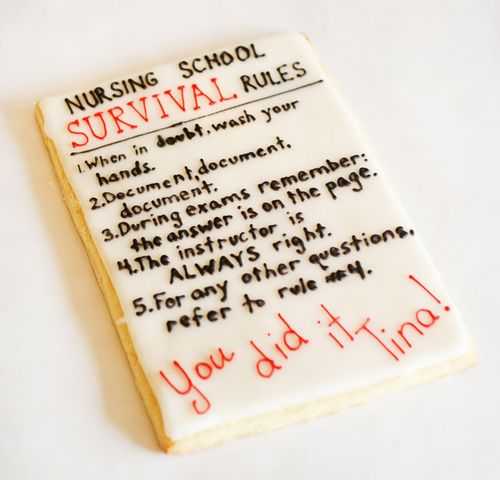 NURSING SCHOOL
SURVIVAL RULES
1.When in doubt, wash your
hands.
2.Document, document,
document.
3.During exams remember:
the answer is on the page.
4.The instructor is
ALWAYS right.
5.For any other questions,
refer to rule #4.
You did it Tina!